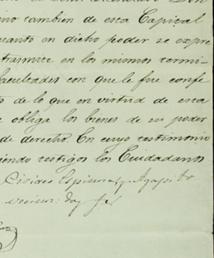 ino tambien de esta Capital
uanto en dicho poder se expre
trumite en los mismos termi
facultades con que le fue confe
to de lo que en virtud de esta
e obliga los bienes de su poder
de derecho. En cuyo testimonio
iendo testigos los Ciudadanos
Espinosa y Agapito
doy fe